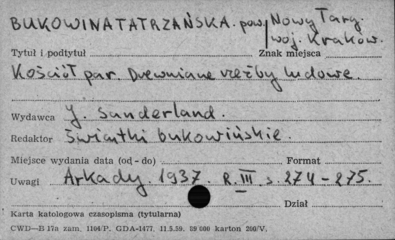 BUKOWINA TATRZAŃSKA. pow. Nowy Targ.
woj. Kraków.
Tytuł i podtytuł
Znak miejsca
Kościół par. Drewniane rzeźby ludowe.
Wydawca J. Sunderland.
Redaktor Świątki bukowińskie.
Miejsce wydania data (od - do)
Format
Uwagi Arkady. 1937. R. III s. 274-275.
Dział
Karta katalogowa czasopisma (tytularna)
CWD—B 17a zam. 1104/P. GDA-1477. 11.5.59. 99 000 karton 200/V.